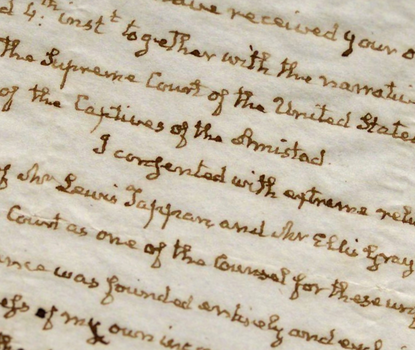 have received your
d 4th instt together with the narrati
the Supreme Court of the United States
of the Captives of the Amistad.
I consented with extreme relu
of Mr Lewis Tappan and Mr Ellis Gray
Court as one of the Counsel for these un
ance was founded entirely and excl
ess of my own